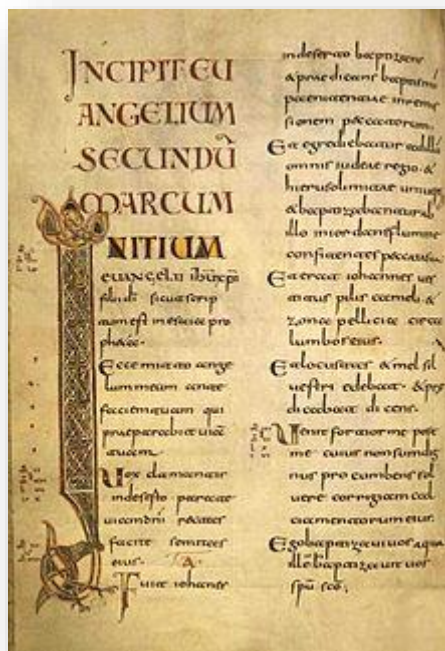 INCIPIT EU
ANGELIUM
SECUNDŪ
MARCUM
INITIUM
euangelii ihu xpi
filii di sicut scrip
tum est in eseia pro
pheta.
Ecce mitto ange
lum meum ante
faciem tuam qui
praeparabit uiam
tuam.
Uox clamantis
in deserto parate
uiam dni rectas
facite semitas
eius.
Fuit iohannes
in deserto baptizans
& praedicans baptismū
paenitentiae in remis
sionem peccatorum.
Et egrediebatur ad illū
omnis iudeae regio &
hierusolimitae uniuersi
& baptizabantur ab
illo in iordane flumine
confitentes peccata sua
Et erat iohannes ues
titus pilis cameli &
zona pellicia circa
lumbos eius.
Et locustas & mel sil
uestre edebat & prae
dicabat dicens.
Uenit fortior me post
me cuius non sum dig
nus procumbens sol
uere corrigiam cal
ciamentorum eius.
Ego baptizaui uos aqua
ille baptizauit uos
spū scō;